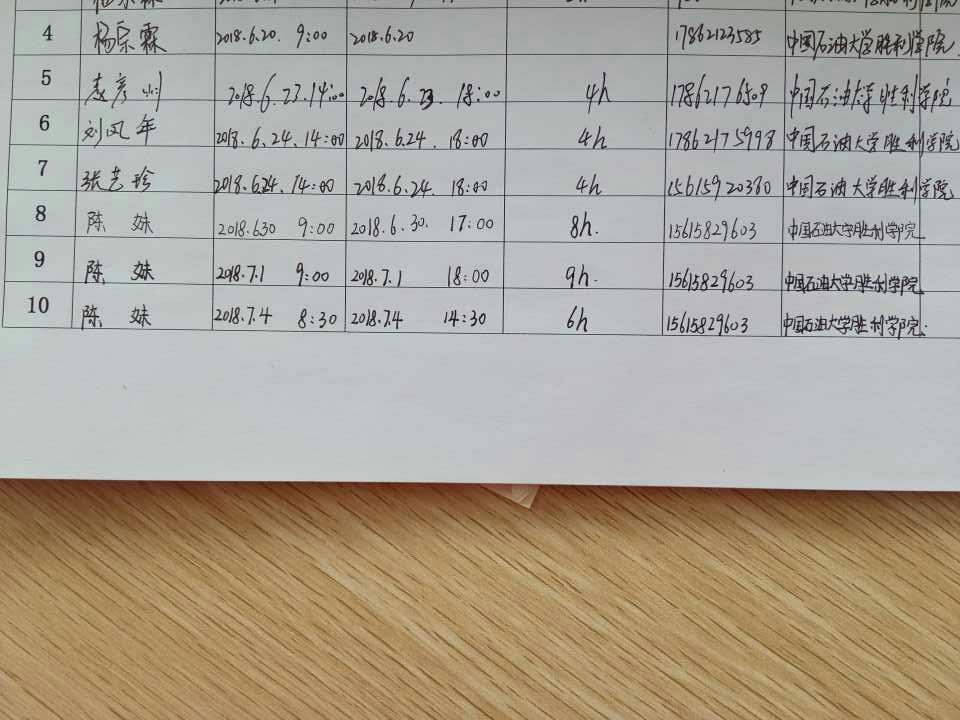 4 杨宗霖 2018.6.20. 9:00 2018.6.20 17862123585 中国石油大学胜利学院
5 李彦州 2018.6.23.14:00 2018.6.23. 18:00 4h 17862176509 中国石油大学胜利学院
6 刘风年 2018.6.24.14:00 2018.6.24. 18:00 4h 17862175998 中国石油大学胜利学院
7 张艺珍 2018.6.24.14:00 2018.6.24. 18:00 4h 15615920380 中国石油大学胜利学院
8 陈 妹 2018.6.30 9:00 2018.6.30. 17:00 8h. 15615829603 中国石油大学胜利学院
9 陈 妹 2018.7.1 9:00 2018.7.1 18:00 9h. 15615829603 中国石油大学胜利学院
10 陈 妹 2018.7.4 8:30 2018.7.4 14:30 6h 15615829603 中国石油大学胜利学院